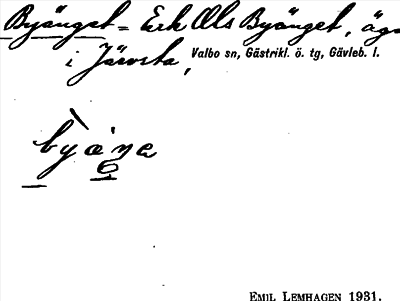 Byänget = Erk Ols Byänget, äga
i Järvsta, Valbo sn, Gästrikl. ö. tg, Gävleb. l.
EMIL LEMHAGEN 1931.